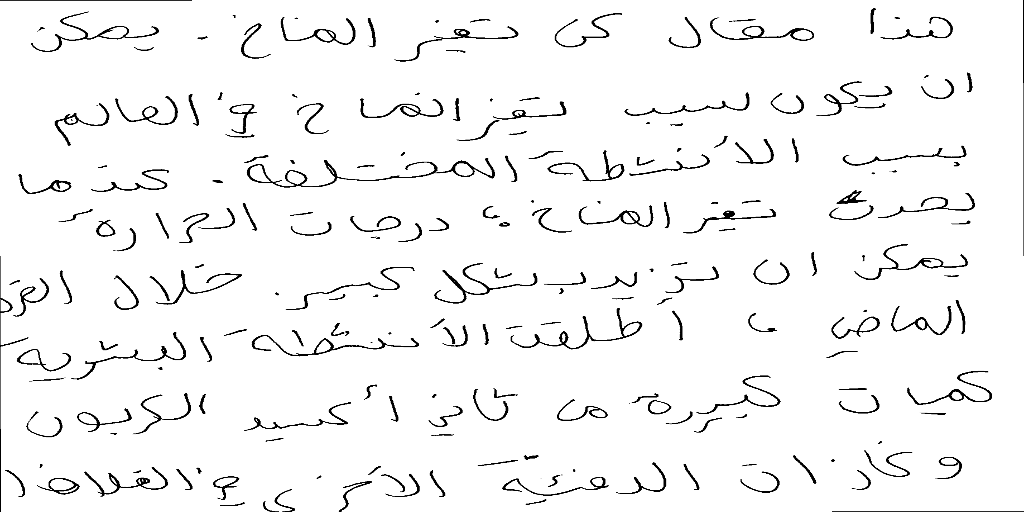 هذا مقال عن تغير المناخ . يمكن
ان يكون لسبب تغير المناخ في العالم
بسبب الأنشطة المختلفة . عندما
يحدث تغير المناخ ، درجات الحرارة
يمكن ان تزيد بشكل كبير . خلال القرن
الماضي ، أطلقت الأنشطة البشرية
كميات كبيرة من ثاني أكسيد الكربون
وغازات الدفئية الأخرى في